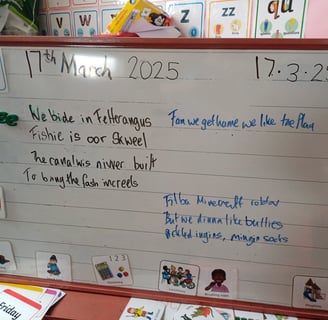 z
zz
qu
17th March 2025
17.3.25
We bide in Fetterangus
Fishie is oor Skweel
The canal wis nivver built
To bring the fash in creels
Fan we get hame we like tae play
Minecraft
But we dinna like butties
Pickled ingins, mingin socks
1 2 3
Friday